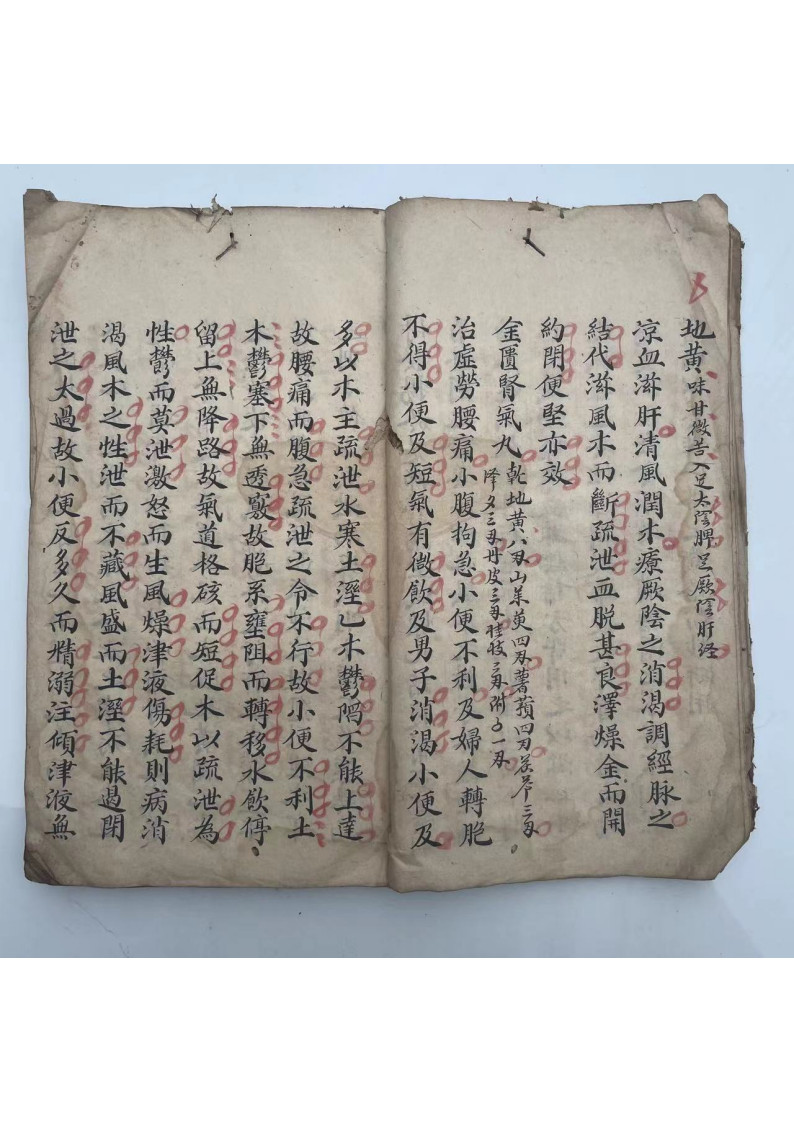 地黃味甘微苦入足太陰脾足厥陰肝經
凉血滋肝清風潤木療厥陰之消渴調經脉之
結代滋風木而斷疏泄血脱甚良澤燥金而開
約閉便堅亦效
金匱腎氣丸乾地黃八刄山茱萸四刄薯蕷四刄茯苓三刄
澤夕三刄丹皮三刄桂枝一刄附子一刄
治虛勞腰痛小腹拘急小便不利及婦人轉胞
不得小便及短氣有微飲及男子消渴小便反
多以木主疏泄水寒土溼乙木鬱陷不能上達
故腰痛而腹急疏泄之令不行故小便不利土
木鬱塞下無透竅故胞系壅阻而轉移水飲停
留上無降路故氣道格硋而短促木以疏泄為
性鬱而莫泄激怒而生風燥津液傷耗則病消
渴風木之性泄而不藏風盛而土溼不能遏閉
泄之太過故小便反多久而精溺注傾津液無